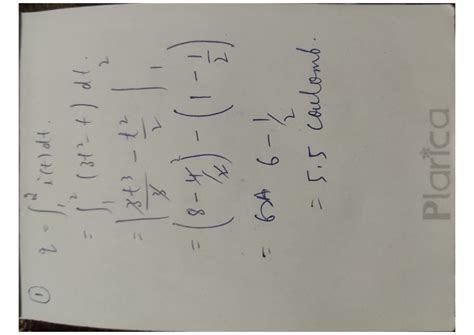 ① q = ∫₁² i(t) dt.
= ∫₁² (3t² - t) dt.
= | 3t³/3 - t²/2 |₁²
= (8 - 4/2) - (1 - 1/2)
= 6 - 1/2
= 5.5 coulomb.
Plarica